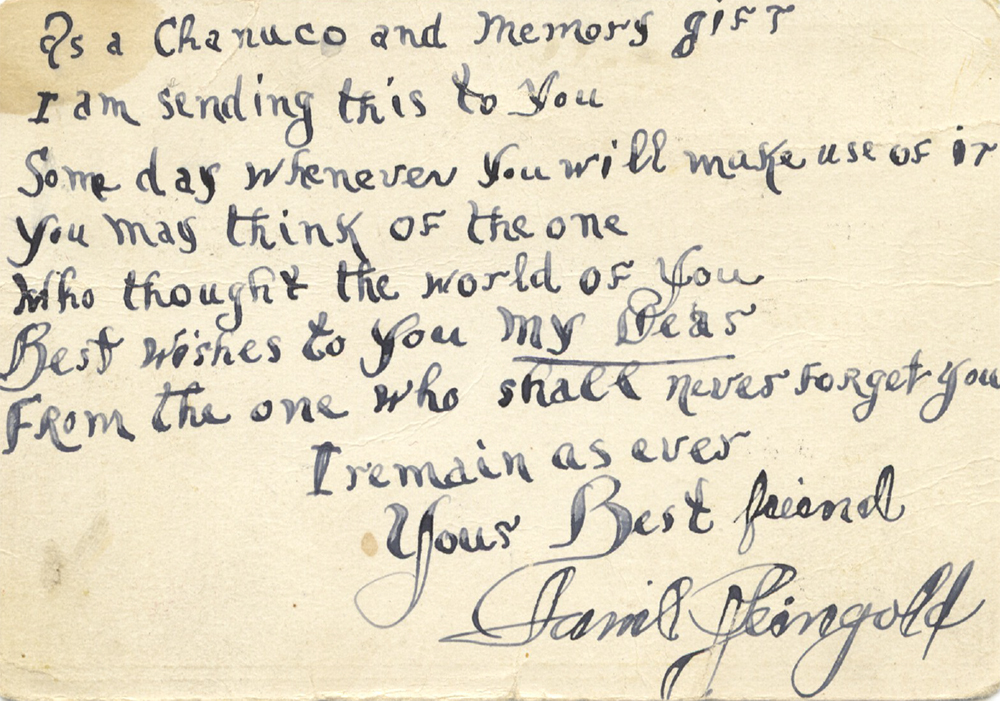 As a Chanuco and Memory gift
I am sending this to you
Some day whenever you will make use of it
you may think of the one
who thought the world of you
Best wishes to you my Dear
From the one who shall never forget you
I remain as ever
Your Best friend
Feingold